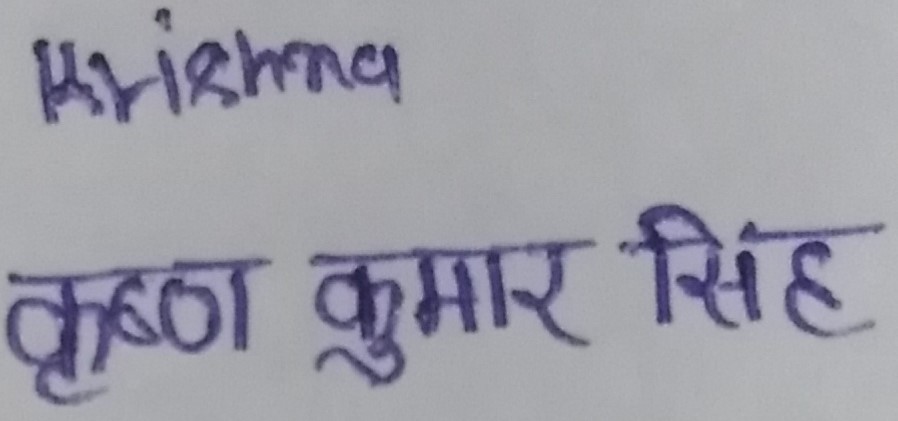 Krishna
कृष्ण कुमार सिंह